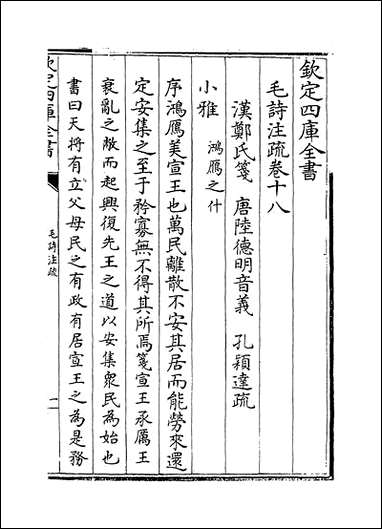 欽定四庫全書
毛詩注疏卷十八
漢鄭氏箋　唐陸德明音義　孔穎達疏
小雅　鴻鴈之什
序鴻鴈美宣王也萬民離散不安其居而能勞來還
定安集之至于矜寡無不得其所焉箋宣王承厲王
衰亂之敝而起興復先王之道以安集衆民為始也
書曰天將有立父母民之有政有居宣王之為是務
欽定四庫全書
毛詩注疏
一